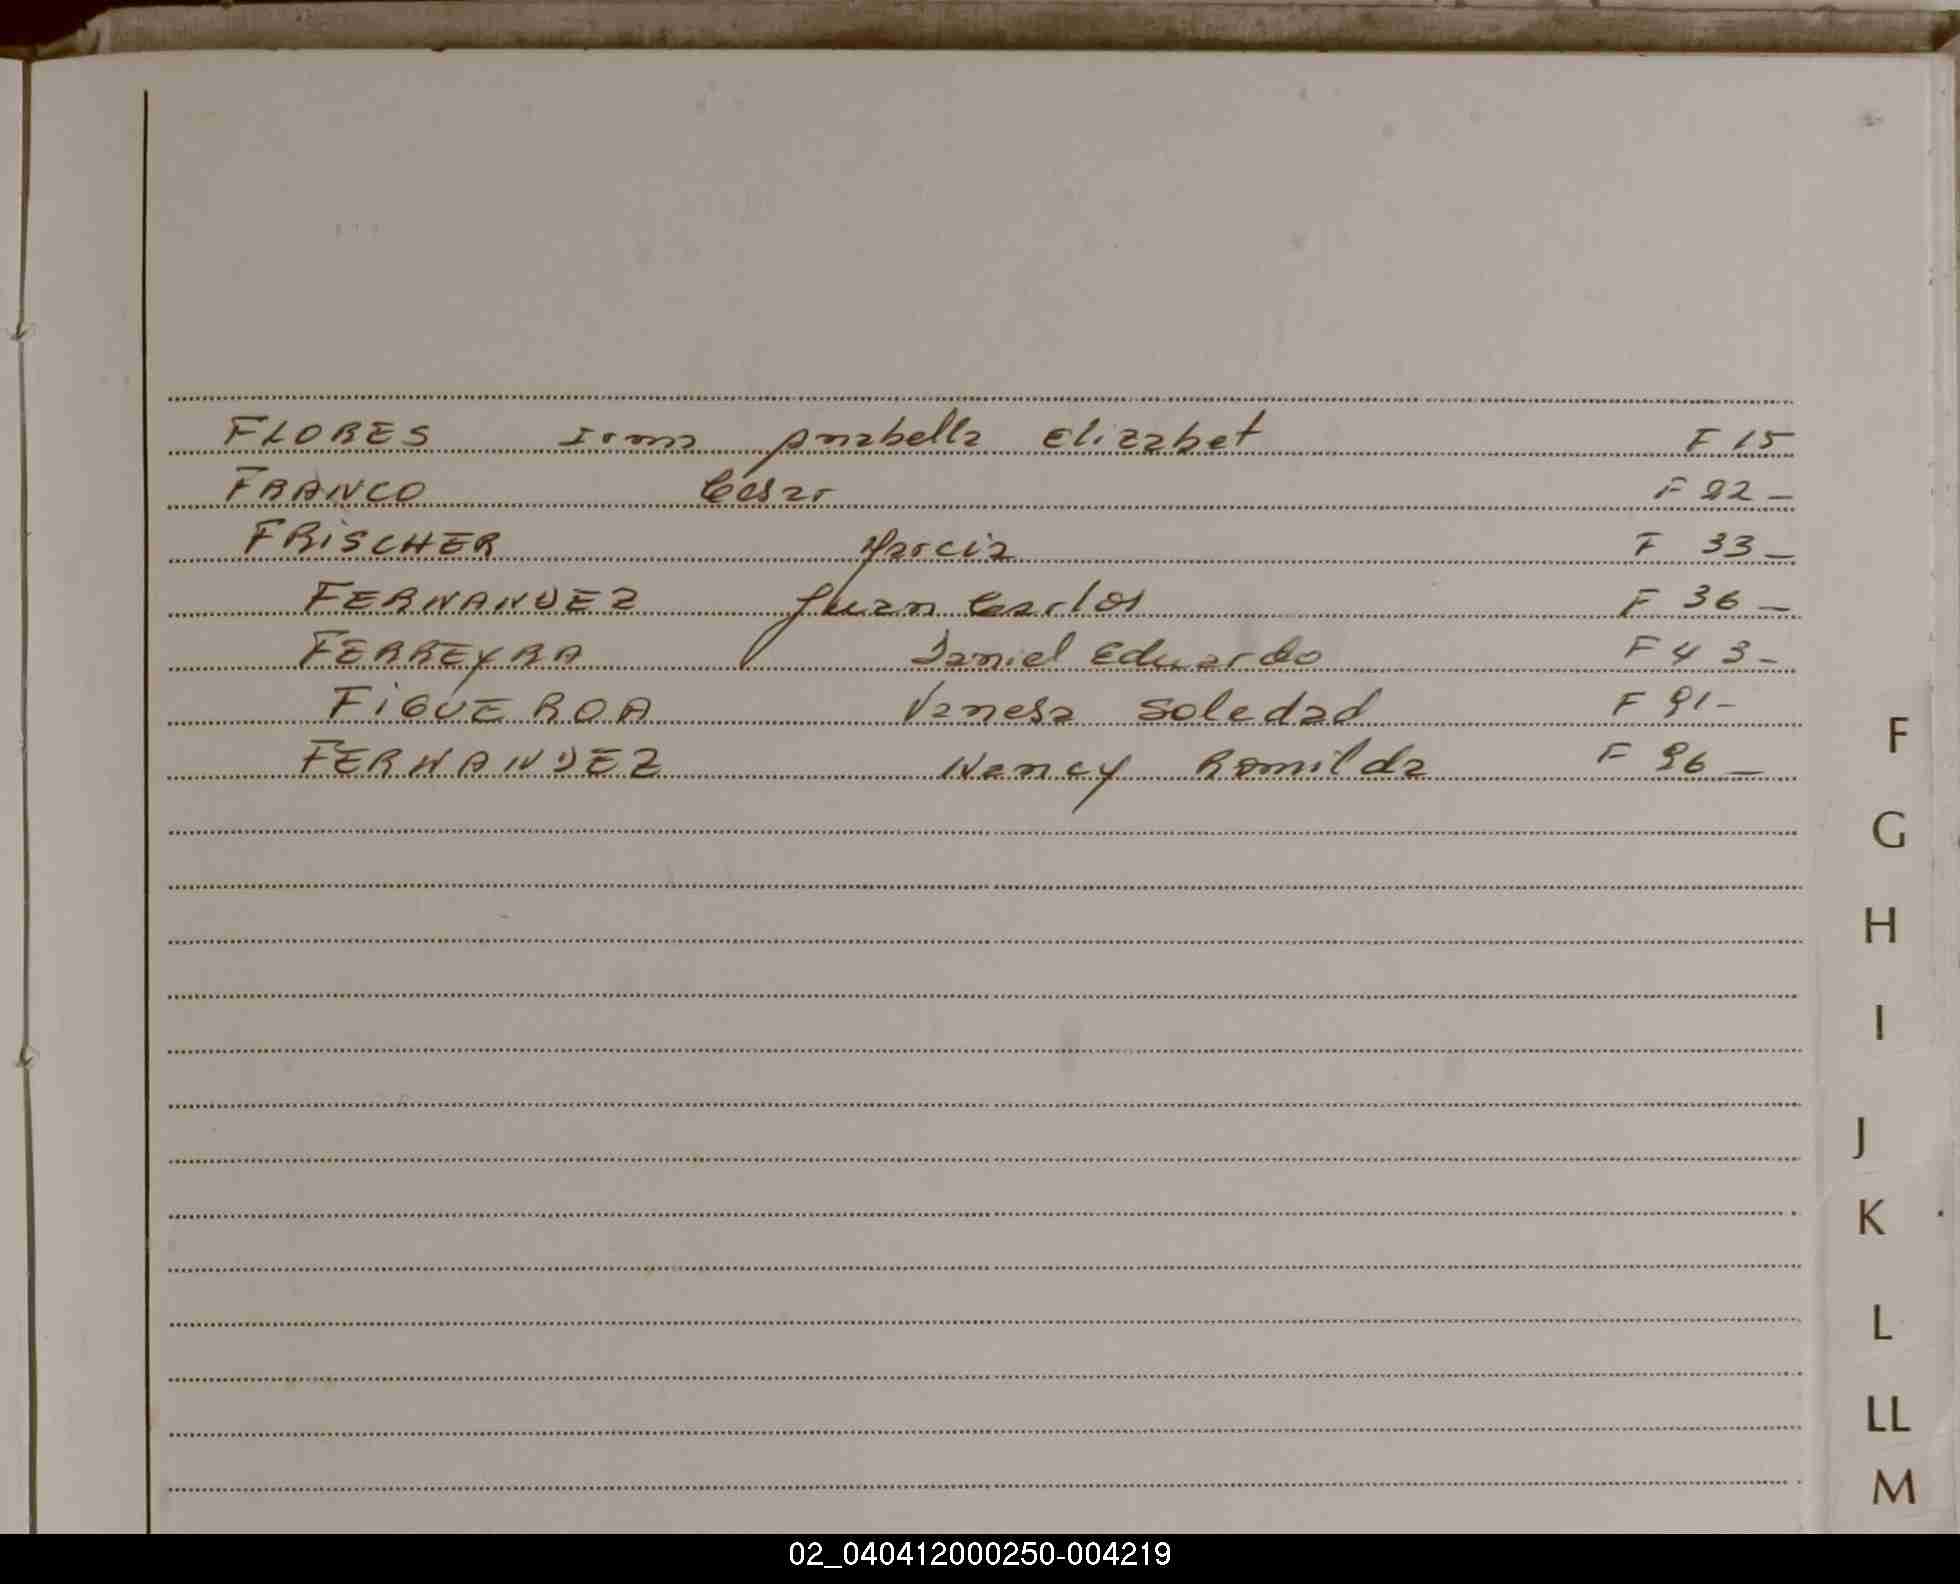 FLORES Irma Anabella Elizabet F 15
FRANCO César F 22 -
FRiSCHER Marcia F 33 -
FERNANDEZ Juan Carlos F 36 -
FERREYRA Daniel Eduardo F 43 -
FiGUEROA Vanesa Soledad F 91 -
FERNANDEZ Nancy Romilda F 96 -
F
G
H
I
J
K
L
LL
M
02_040412000250-004219